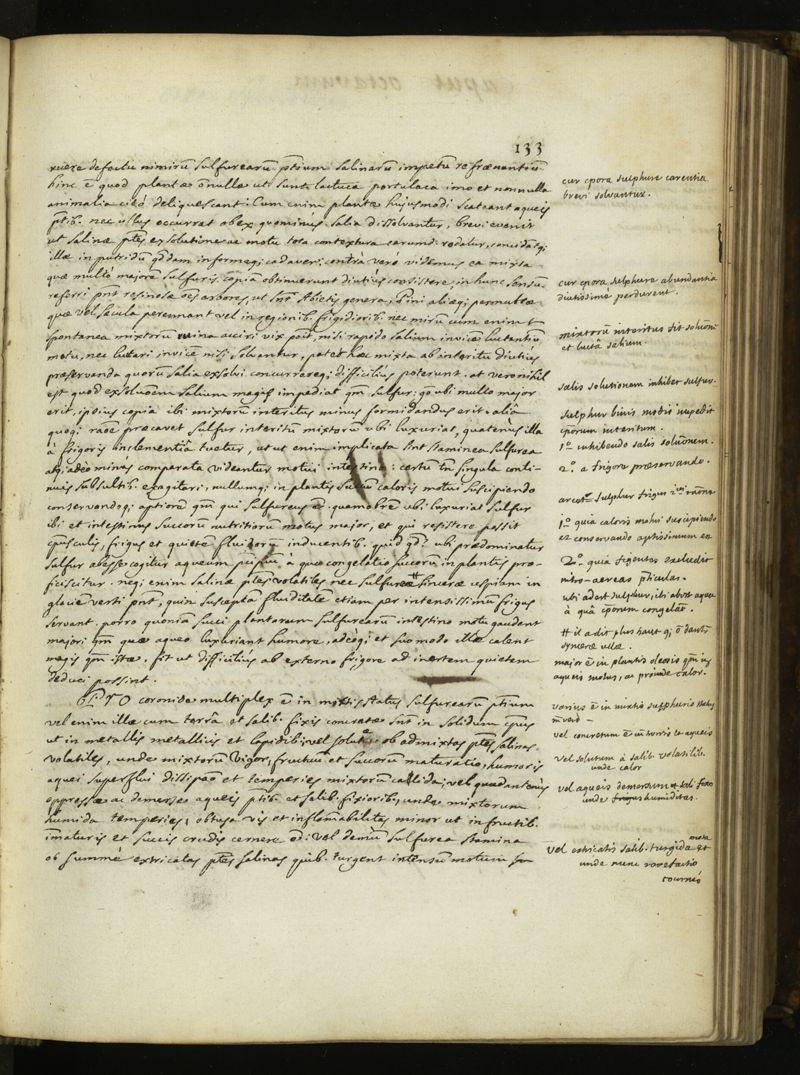 133
ruere defectu nimirū sulfurearū ptium salinarū impetū refrænantiū
hinc ē quod plantæ ōnullæ ut sunt lactuca portulaca imo et nonnulla
animalia citò deliquescant: Cum enim plantæ hujusmodi scateant aqueis
ptib. nec ullus occurrat obex quominus salia dissolvantur, brevi evenit
ut salinæ ptes ex solutione ac motu tota contextura earum rodatur, concidatq;
illæ in putridū qddam informeq; cadaver: contrà verò videmus ea mixta
quæ multò majorē sulfuris copiā obtinuerunt diutius consistere, in hunc sensū
referri pnt resinosæ oēs arbores, ut snt Abietis genera, Pini aliæq; permultæ
quæ vel sæcula perennant vel in regionib. frigidiorib. nec mirū cum enim
spontanea mixtorū ruina acciri vix possit, nisi rapido salium invice luctantiū
motu, nec luctari invicē nisi solvantur, patet hæc mixta ab interitu diutius
præservanda quorū salia exsolvi concurrereq; difficilius poterunt. at vero nihil
est quod exsolutionem salium magis impediat qm sulfur: qo ubi multo major
erit, ipsius copia ibi mixtorū interitus minus formidandus erit. aliā
quoq; raõe præcavet sulfur interitū mixtorū ubi luxuriat, quatenus illa
à frigoris inclementiâ tuetur, ut ut enim implicata sint staminea sulfurea
atq; adeo minus comparata videantur motui intestino: certū tn singula conti-
nuis subsultib. exagitari, nullumq; in plantis succū caloris motui suscipiendo
conservandoq; aptiorē qm qui sulfureus ē. quamobrē ubi luxuriat sulfur
ibi et intestinus succorū nutritiorū motus major, et qui resistere possit
cpusculis, frigus et quietē fluidorū inducentib. quid qd. ubi prædominatur
sulfur abesse cogitur aqueum à quæ congelatio succorū in plantis pro-
ficiscitur. neq; enim salinæ ptes volatiles nec sulfureæ # sinceræ uspiam in
glaciē verti pnt, quin susceptā fluiditatē etiam per intensissimū frigus
servant. porro quoniā succi plantarum sulfurearū intestino motu gaudent
majori qm quæ aqueo luxuriant humore, adeòq; et suo modo illæ calent
magis qm istæ, fit ut difficilius ab externo frigore ad inertem quietem
deduci possint.
PRO coronide multiplex ē in mixtis status sulfurearū ptium
vel enim illæ cum terrâ et salib. fixis concretæ snt in solidum cpus
ut in metallis metallicis et lapidib; vel solutæ ob admixtas ptes salinas
volatiles, unde mixtorū vigor, fructuū et succorū maturatio, humoris
aquei superflui dissipaõ et temperies mixtorū callida; vel quadantenus
oppressæ ac demersæ aqueis ptib. et salib. fixiorib, unde mixtorum
humida temperies, obtusa vis et inflamabilitas minor ut in fructib.
imaturis et succis crudis cernere ē: vel demū sulfurea stamina
ob summé extricatas ptes salinas quib. turgent intensū motum
cur cpora sulphure carentia
brevi solvantur.
cur cpora sulphure abundantia
diutissimè perdurent.
mixtorū interitus fit solutioni
et luctâ salium.
salis solutionem inhibet sulfur.
sulphur binis modis impedit
cporum interitum.
1º inhibendo salis solutionem.
2º a frigore præservando.
arcet sulphur frigus
1º quia caloris motui suscipiendo
et conservando aptissimum est
2º quia frigentes excludit
nitro-aereas pticulas.
ubi adest sulphur, ibi abest aqua
à quâ cporum congelaõ.
# il a dit plus haut q;
synceræ
major ē in plantis oleosis qm
aqueis motus, ac proinde calor.
varius ē in mixtis sulphuris status
vel concretum ē in
vel solutum à salib. volatilib.
unde calor
vel aqueis demersum # sali fixo
unde humiditas.
vel extricatis salib. turgida et
unde nunc rarefactio